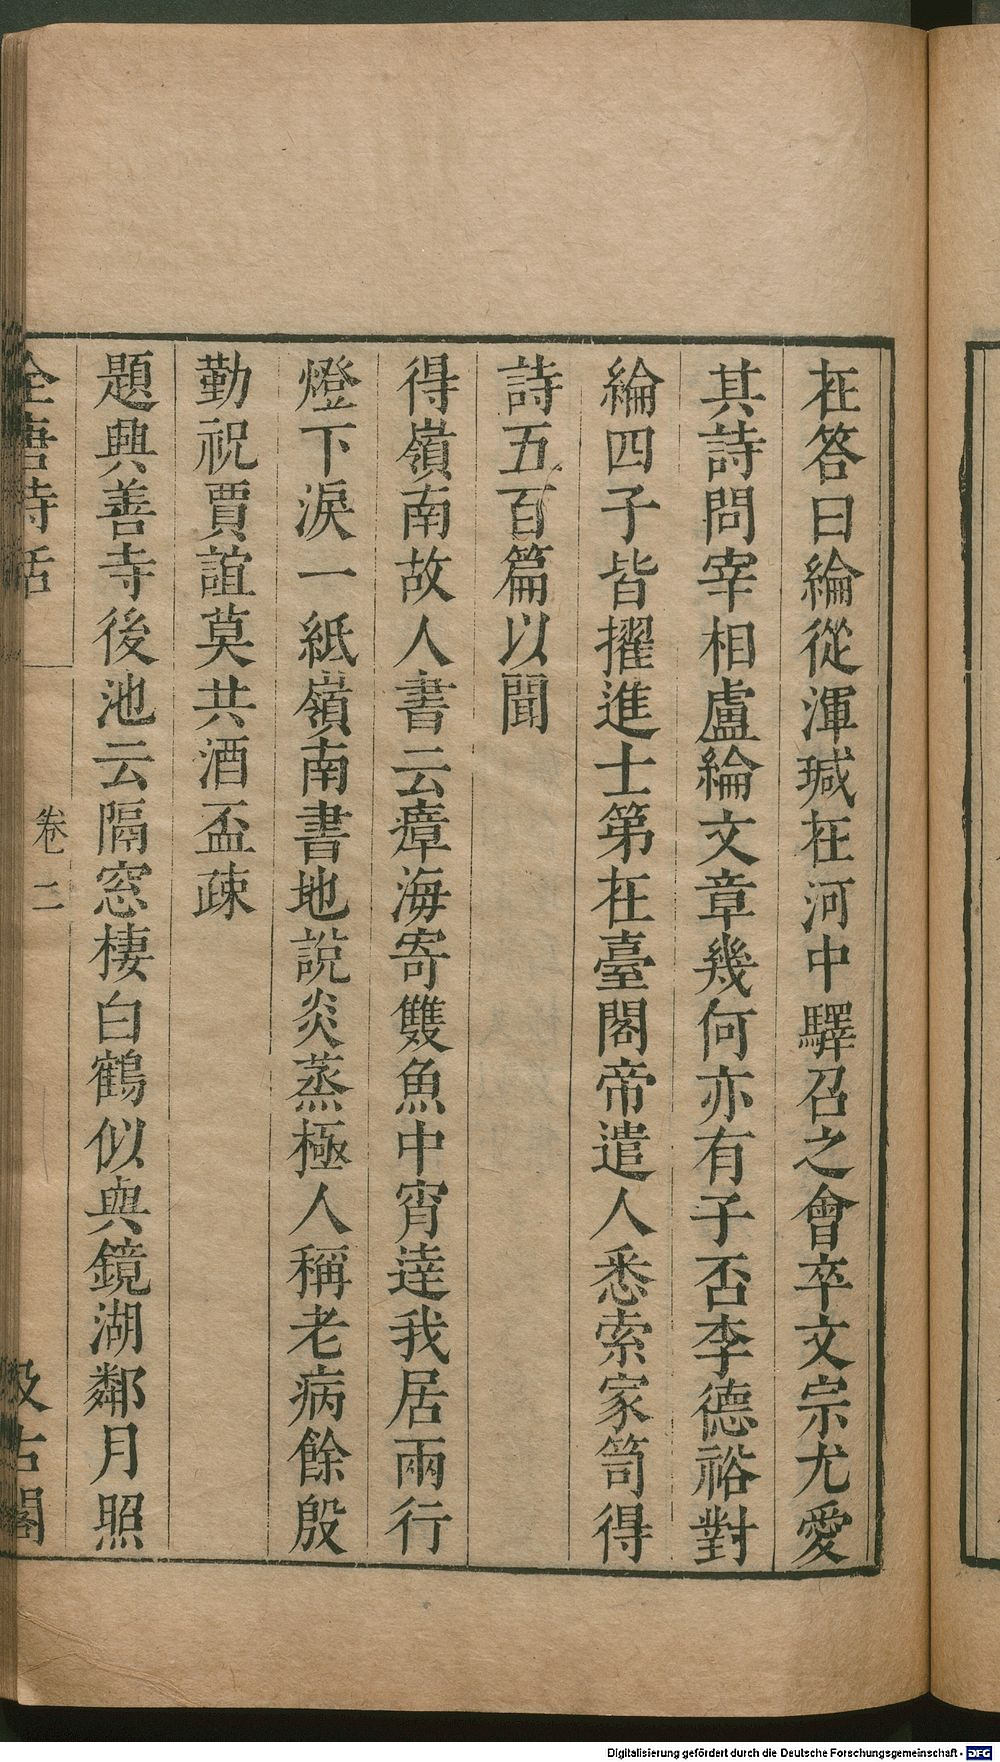 在答曰綸從渾瑊在河中驛召之會卒文宗尤愛
其詩問宰相盧綸文章幾何亦有子否李德裕對
綸四子皆擢進士第在臺閣帝遣人悉索家笥得
詩五百篇以聞
得嶺南故人書云瘴海寄雙魚中宵達我居兩行
燈下淚一紙嶺南書地說炎蒸極人稱老病餘殷
勤祝賈誼莫共酒盃疎
題興善寺後池云隔窓棲白鶴似與鏡湖鄰月照
全唐詩話
卷二
汲古閣
Digitalisierung gefördert durch die Deutsche Forschungsgemeinschaft - DFG